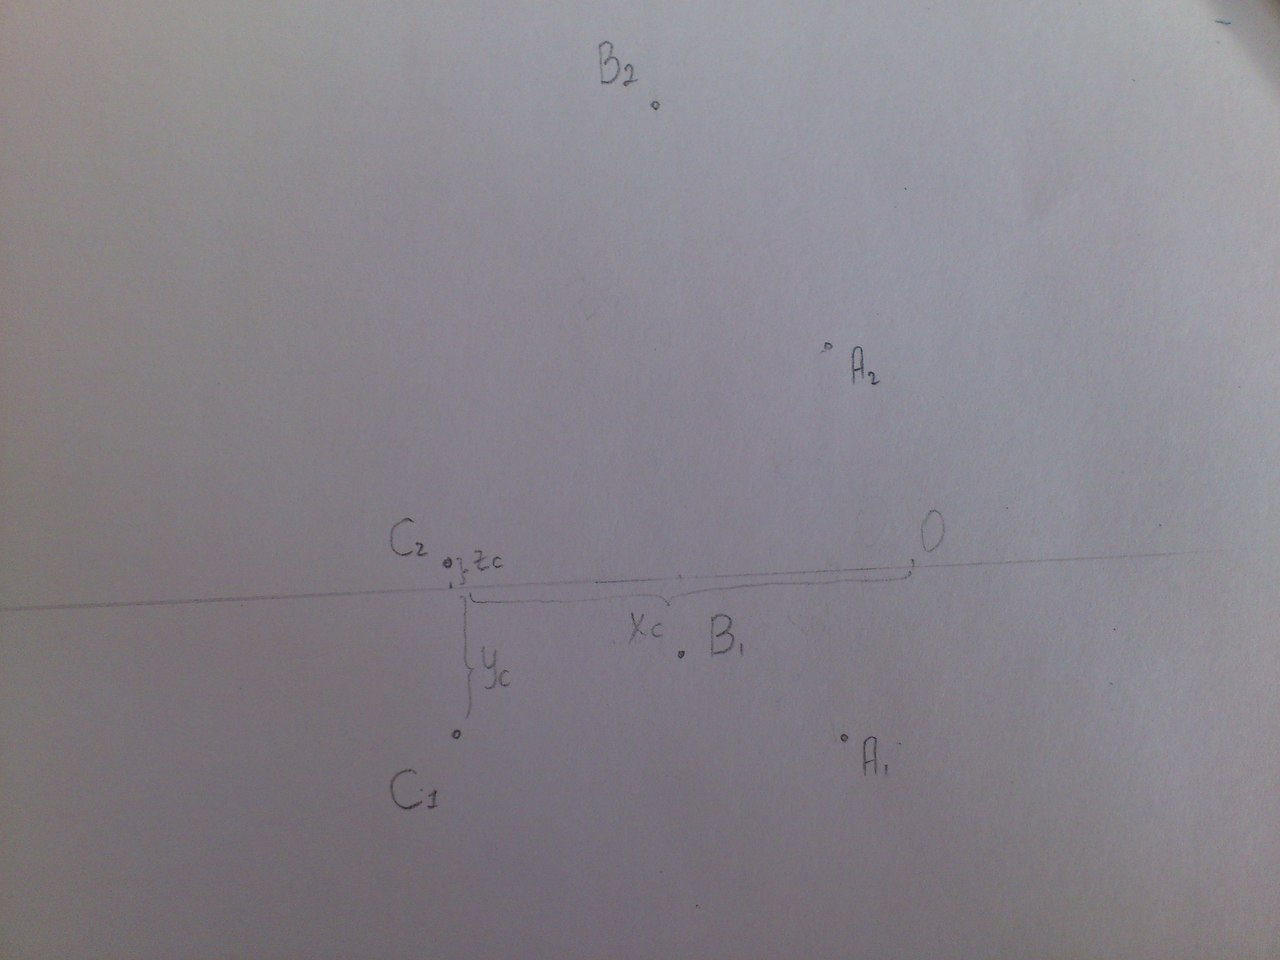 B₂
A₂
C₂
zc
O
xc
B₁
yc
A₁
C₁